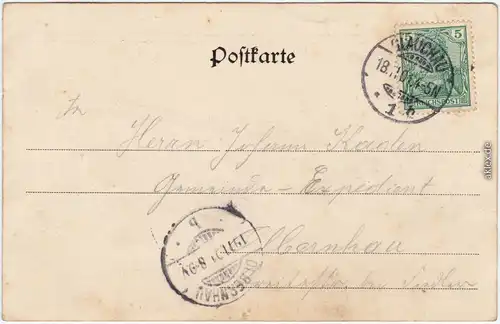 Postkarte
5 5
GLAUCHAU
18.11.01. 4-5N
1 b
REICHSPOST
An
Herrn Johann Kaden
Gemeinde-Expedient
Olbernhau
b
19.11.01 8-9V
OLBERNHAU
akpool.de